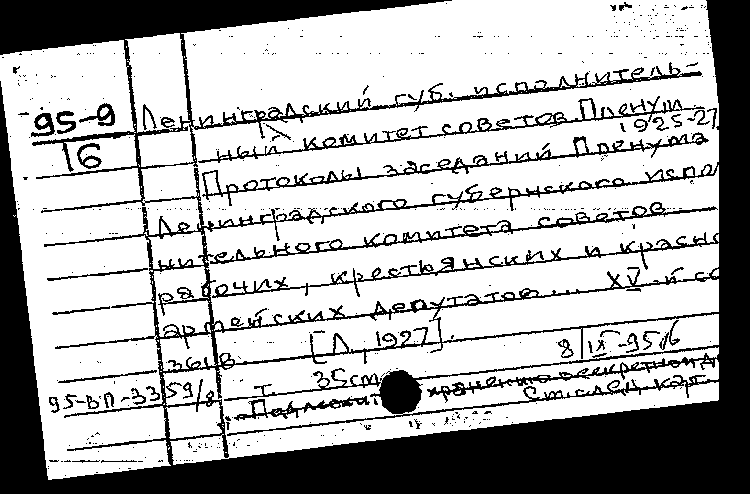 95-9
16
Ленинградский губ. исполнитель-
ный комитет советов Пленум
1925-27
Протоколы заседаний Пленума
Ленинградского губернского испол
нительного комитета советов
рабочих, крестьянских и красно
армейских депутатов... XV-й со
[Л., 1927].
361 в.
8/IX-95г
95-ВП-3359/8
т. 35см
Подлежит хранению в секретном
См. след. карт.